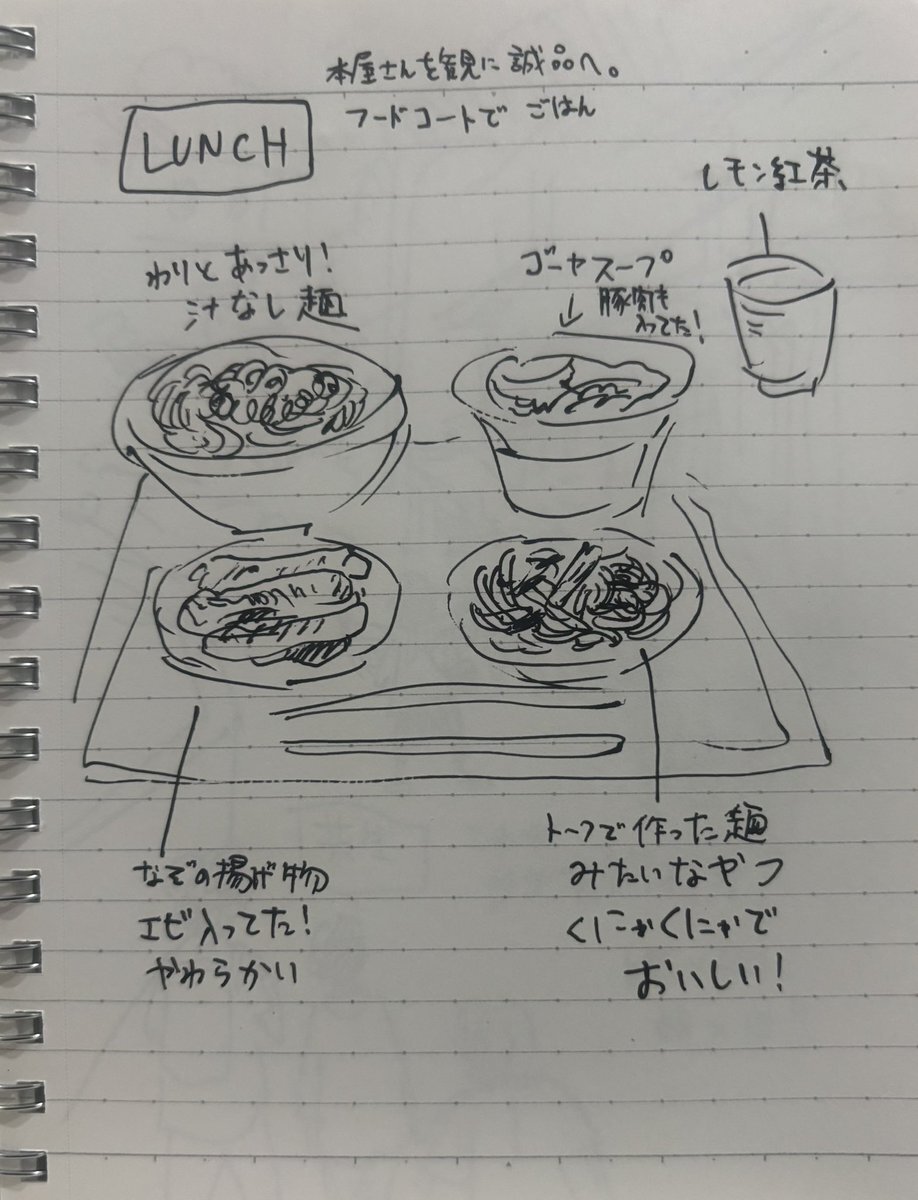 本屋さんを観に誠品へ。
フードコートで ごはん
LUNCH
レモン紅茶
わりとあっさり!
汁なし麺
ゴーヤスープ
豚肉も
入ってた!
なぞの揚げ物
エビ入ってた!
やわらかい
トーフで作った麺
みたいなヤツ
くにゃくにゃで
おいしい!